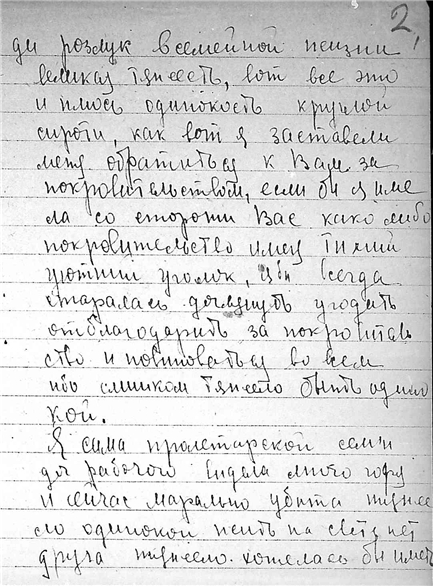 2,
ди розлук всемейной жизни
великая тяжесть, вот все это
и плюсь одинокость круглой
сироти, как вот я заставели
меня обратиться к Вам за
покровительством, если би я име
ла со стороти Вас како либо
покровительство имея тихий
уютний уголок, я би всегда
старалась
угодить
отблагодарить за покровитель
ство и повиноваться во всем
ибо слишком тяжело быть одино
кой.
Я сама пролетарской семи
доч рабочого видела много горя
и сейчас марально убита тяжле
ло одинокой жить на свете нет
друга тяжело. хотелась би иметь